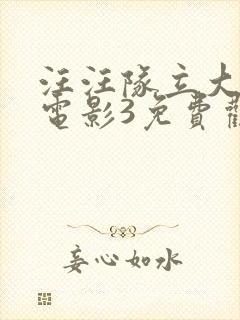 汪汪隊立大
電影3免費
妄心如水